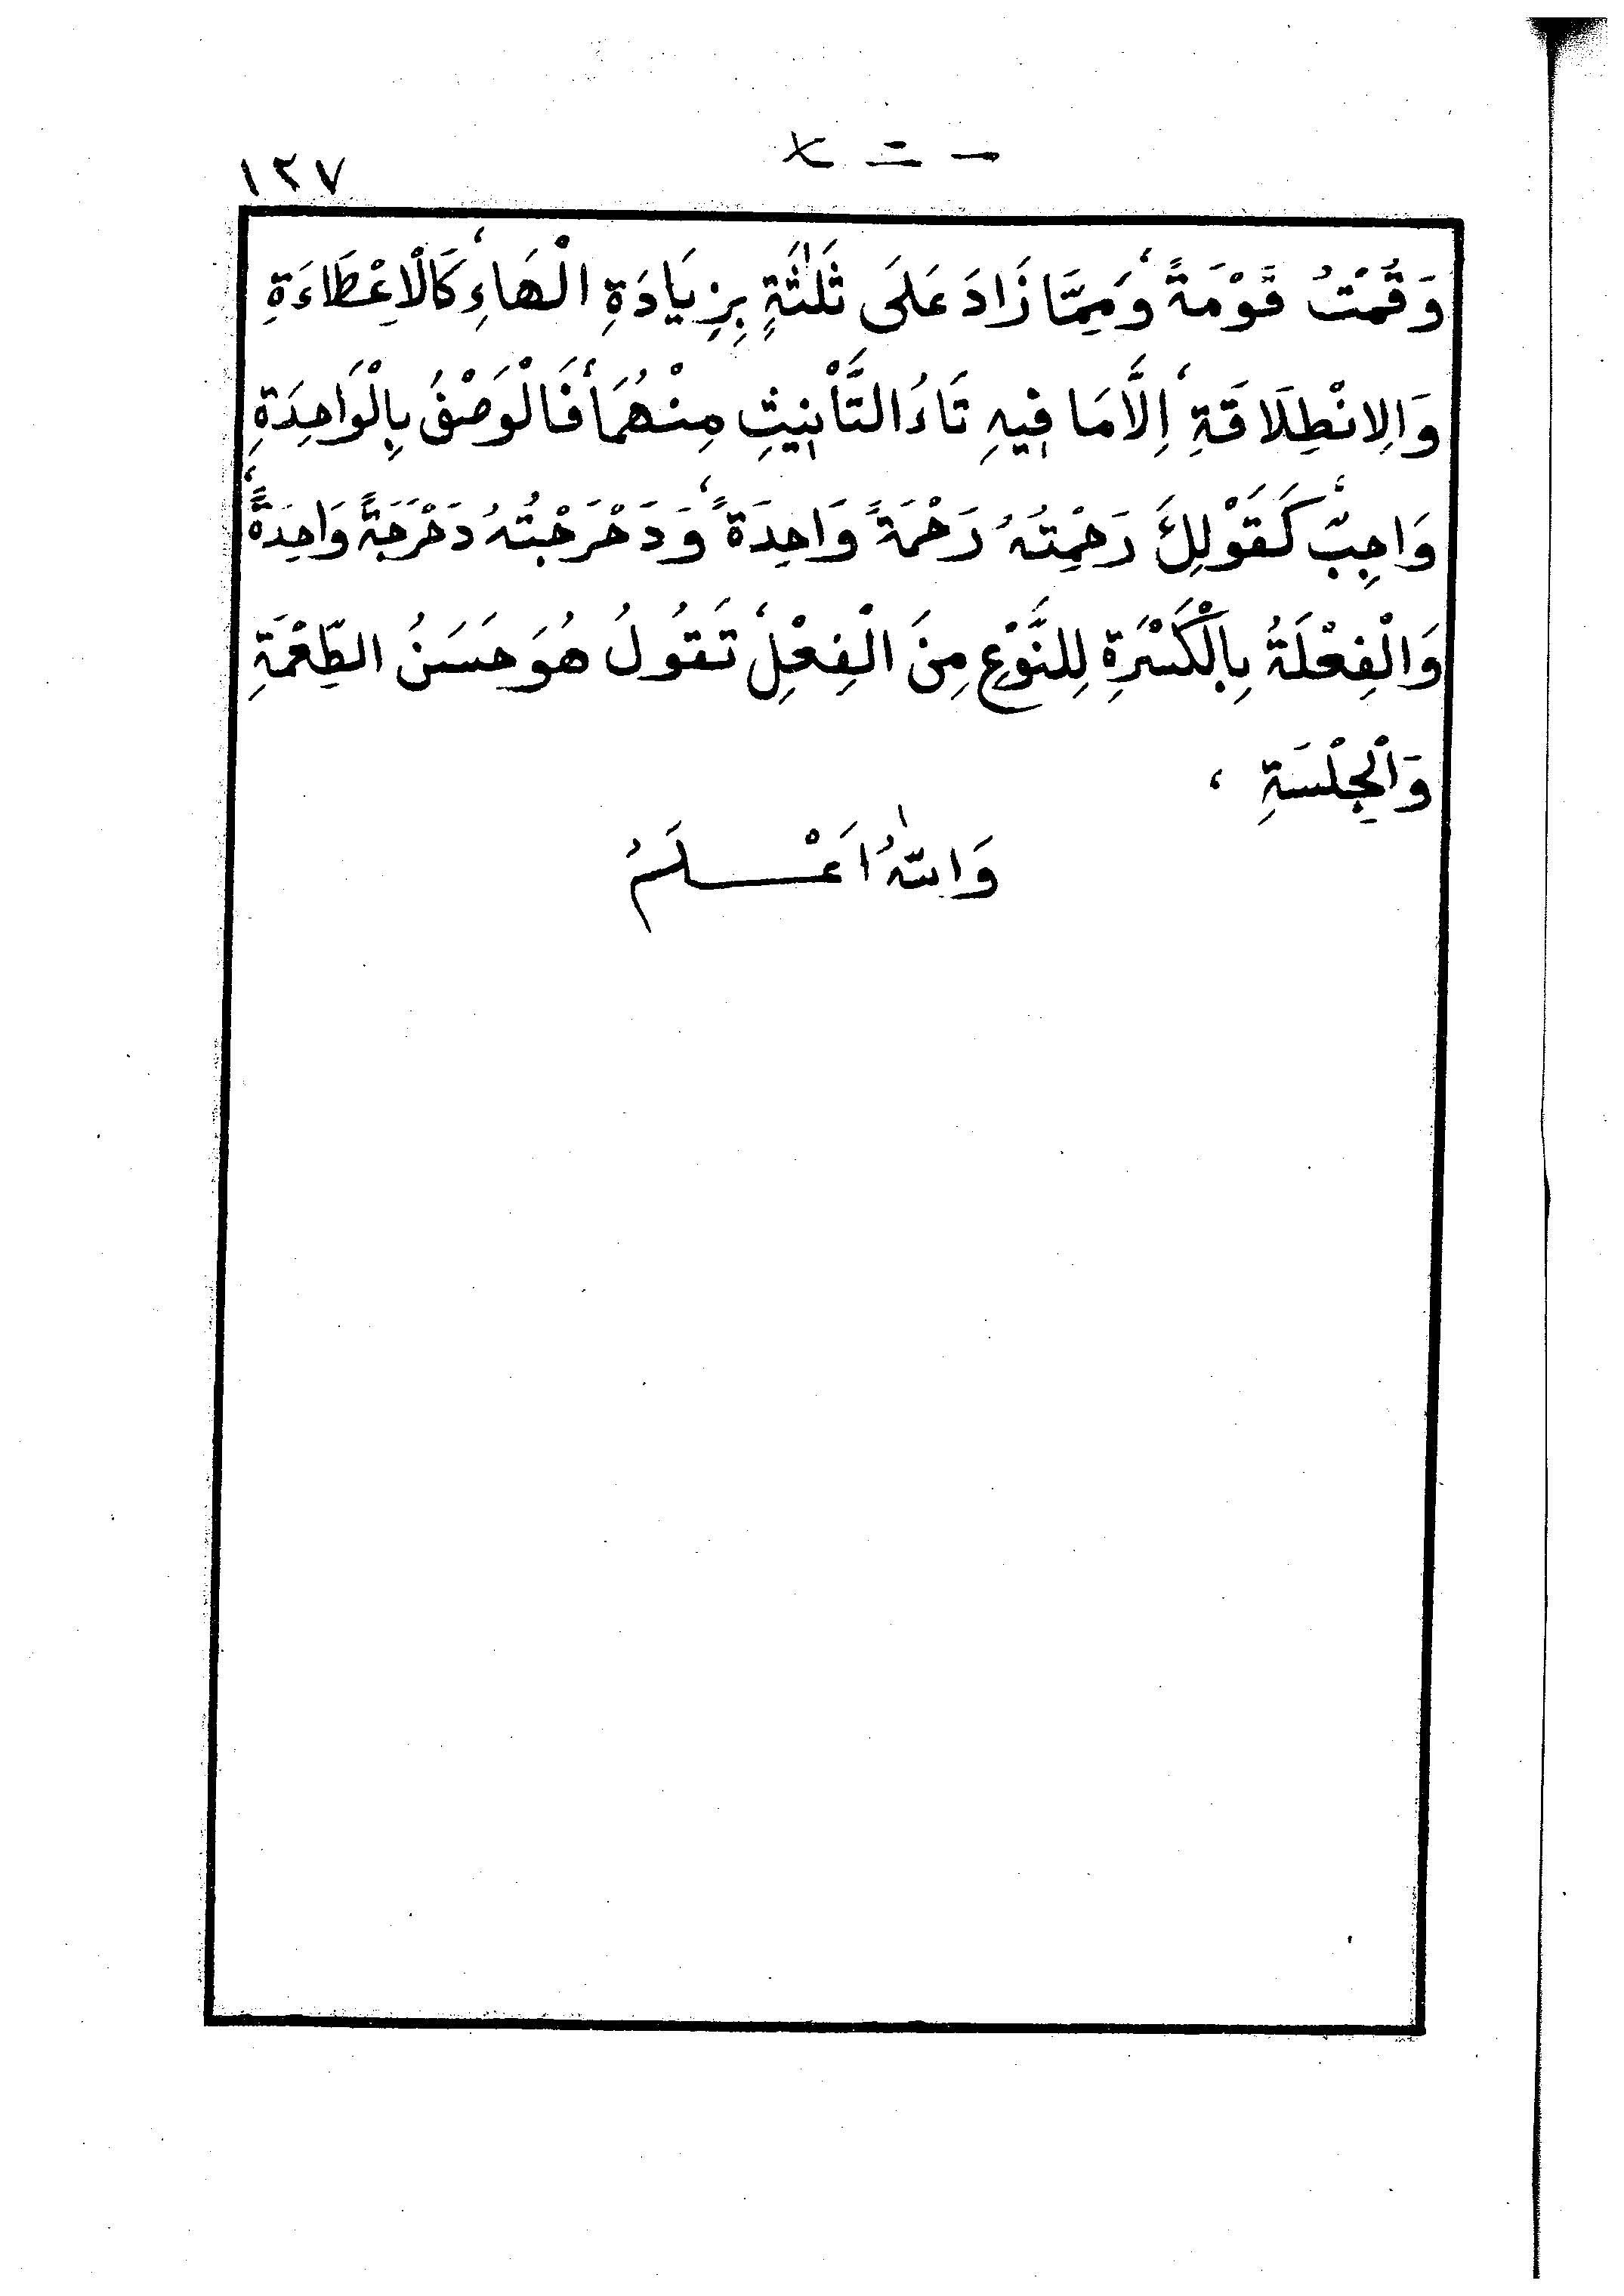 ١٢٧
وَقُمْتُ قَوْمَةً، وَمِمَّا زَادَ عَلَى ثَلٰثَةٍ بِزِيَادَةِ الْهَاءِ، كَالْاِعْطَاءَةِ
وَالِانْطِلَاقَةِ، اِلَّا مَا فِيهِ تَاءُ التَّأْنِيثِ مِنْهُمَا، فَالْوَصْفُ بِالْوَاحِدَةِ
وَاجِبٌ، كَقَوْلِكَ رَحِمْتُهُ رَحْمَةً وَاحِدَةً، وَدَحْرَجْتُهُ دَحْرَجَةً وَاحِدَةً،
وَالْفِعْلَةُ بِالْكَسْرَةِ لِلنَّوْعِ مِنَ الْفِعْلِ، تَقُولُ هُوَ حَسَنُ الطِّعْمَةِ
وَالْجِلْسَةِ ،
وَاللّٰهُ اَعْلَمُ